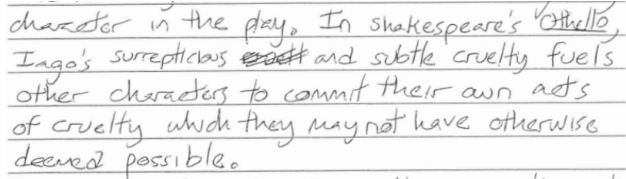 character in the play. In Shakespeare's Othello,
Iago's surrepticious and subtle cruelty fuels
other characters to commit their own acts
of cruelty which they may not have otherwise
deemed possible.